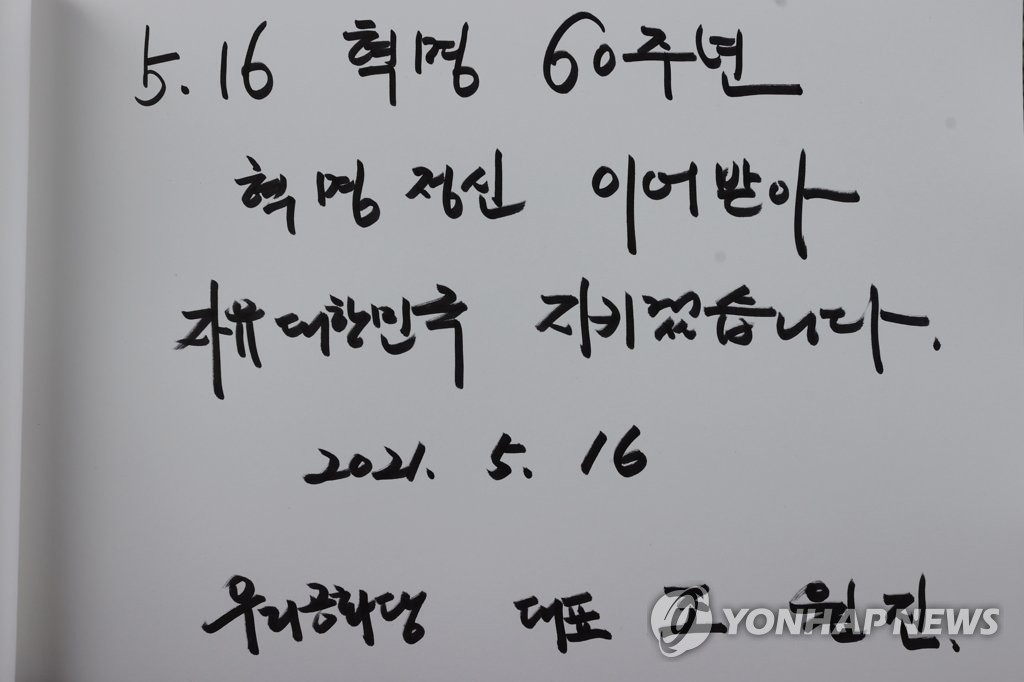 5.16 혁명 60주년
혁명 정신 이어받아
자유대한민국 지키겠습니다.
2021. 5. 16
우리공화당 대표 조원진.
YONHAP NEWS